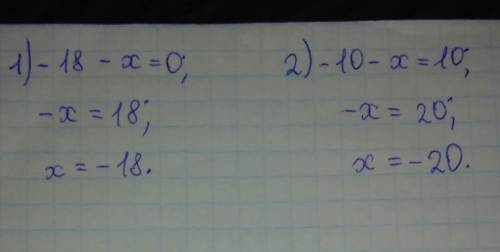 1) -18 - x = 0;
-x = 18;
x = -18.
2) -10 - x = 10;
-x = 20;
x = -20.